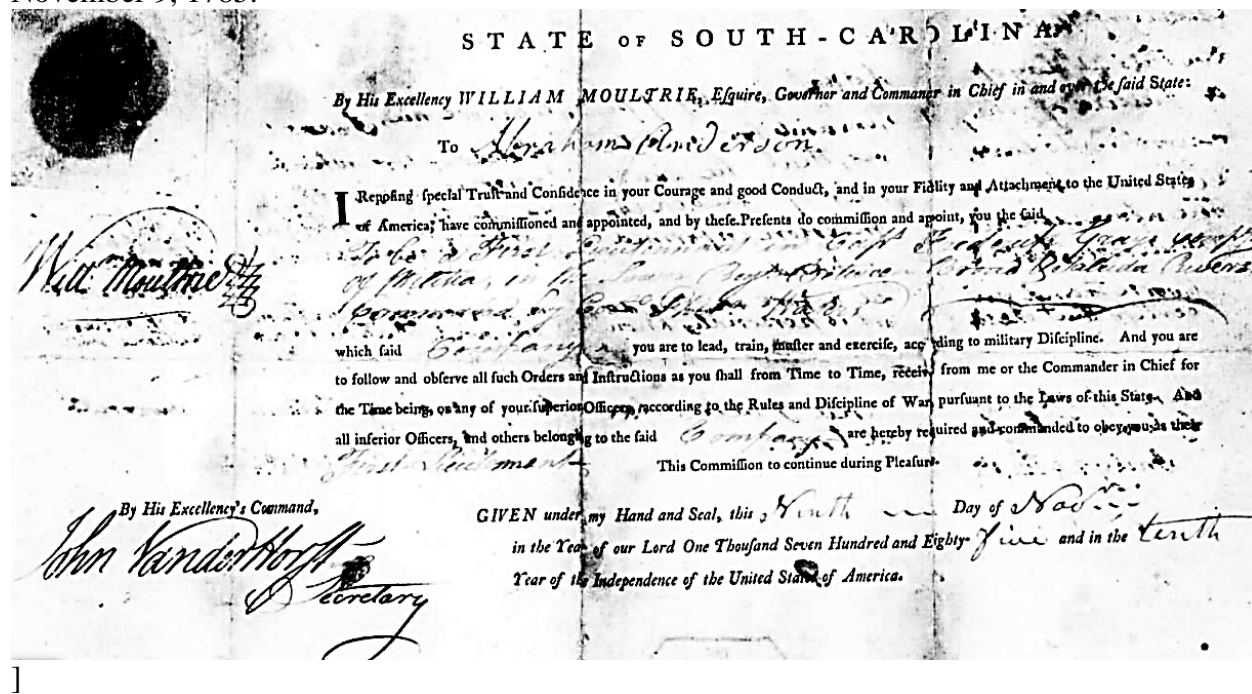 November 9, 1785.
STATE OF SOUTH-CAROLINA
By His Excellency WILLIAM MOULTRIE, Eſquire, Governor and Commaner in Chief in and over the ſaid State:
To Abraham Anderson.
I Repoſing ſpecial Truſt and Confidence in your Courage and good Conduct, and in your Fidlity and Attachment to the United States
of America; have commiſſioned and appointed, and by theſe Preſents do commiſſion and apoint, you the ſaid
To be a First Lieutenant in Capt Frederick Grays
of Militia, in the Lower Regt between Broad & Saluda Rivers
Will Moultrie
Commanded by
which ſaid Company you are to lead, train, muſter and exerciſe, acc ding to military Diſcipline. And you are
to follow and obſerve all ſuch Orders and Inſtructions as you ſhall from Time to Time, receiv from me or the Commander in Chief for
the Time being, or any of your ſuperior Officers, according to the Rules and Diſcipline of War, purſuant to the Laws of this State. And
all inferior Officers, and others belonging to the ſaid Company are hereby required and commanded to obey you as their
First Lieutenant This Commiſſion to continue during Pleaſure.
By His Excellency's Command,
GIVEN under my Hand and Seal, this Ninth Day of Novr
John VanderHorst
Secretary
in the Year of our Lord One Thouſand Seven Hundred and Eighty-five and in the tenth
Year of the Independence of the United States of America.
]